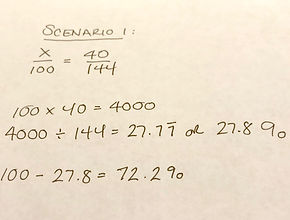 SCENARIO 1:
x/100 = 40/144
100 x 40 = 4000
4000 ÷ 144 = 27.77 or 27.8%
100 - 27.8 = 72.2%